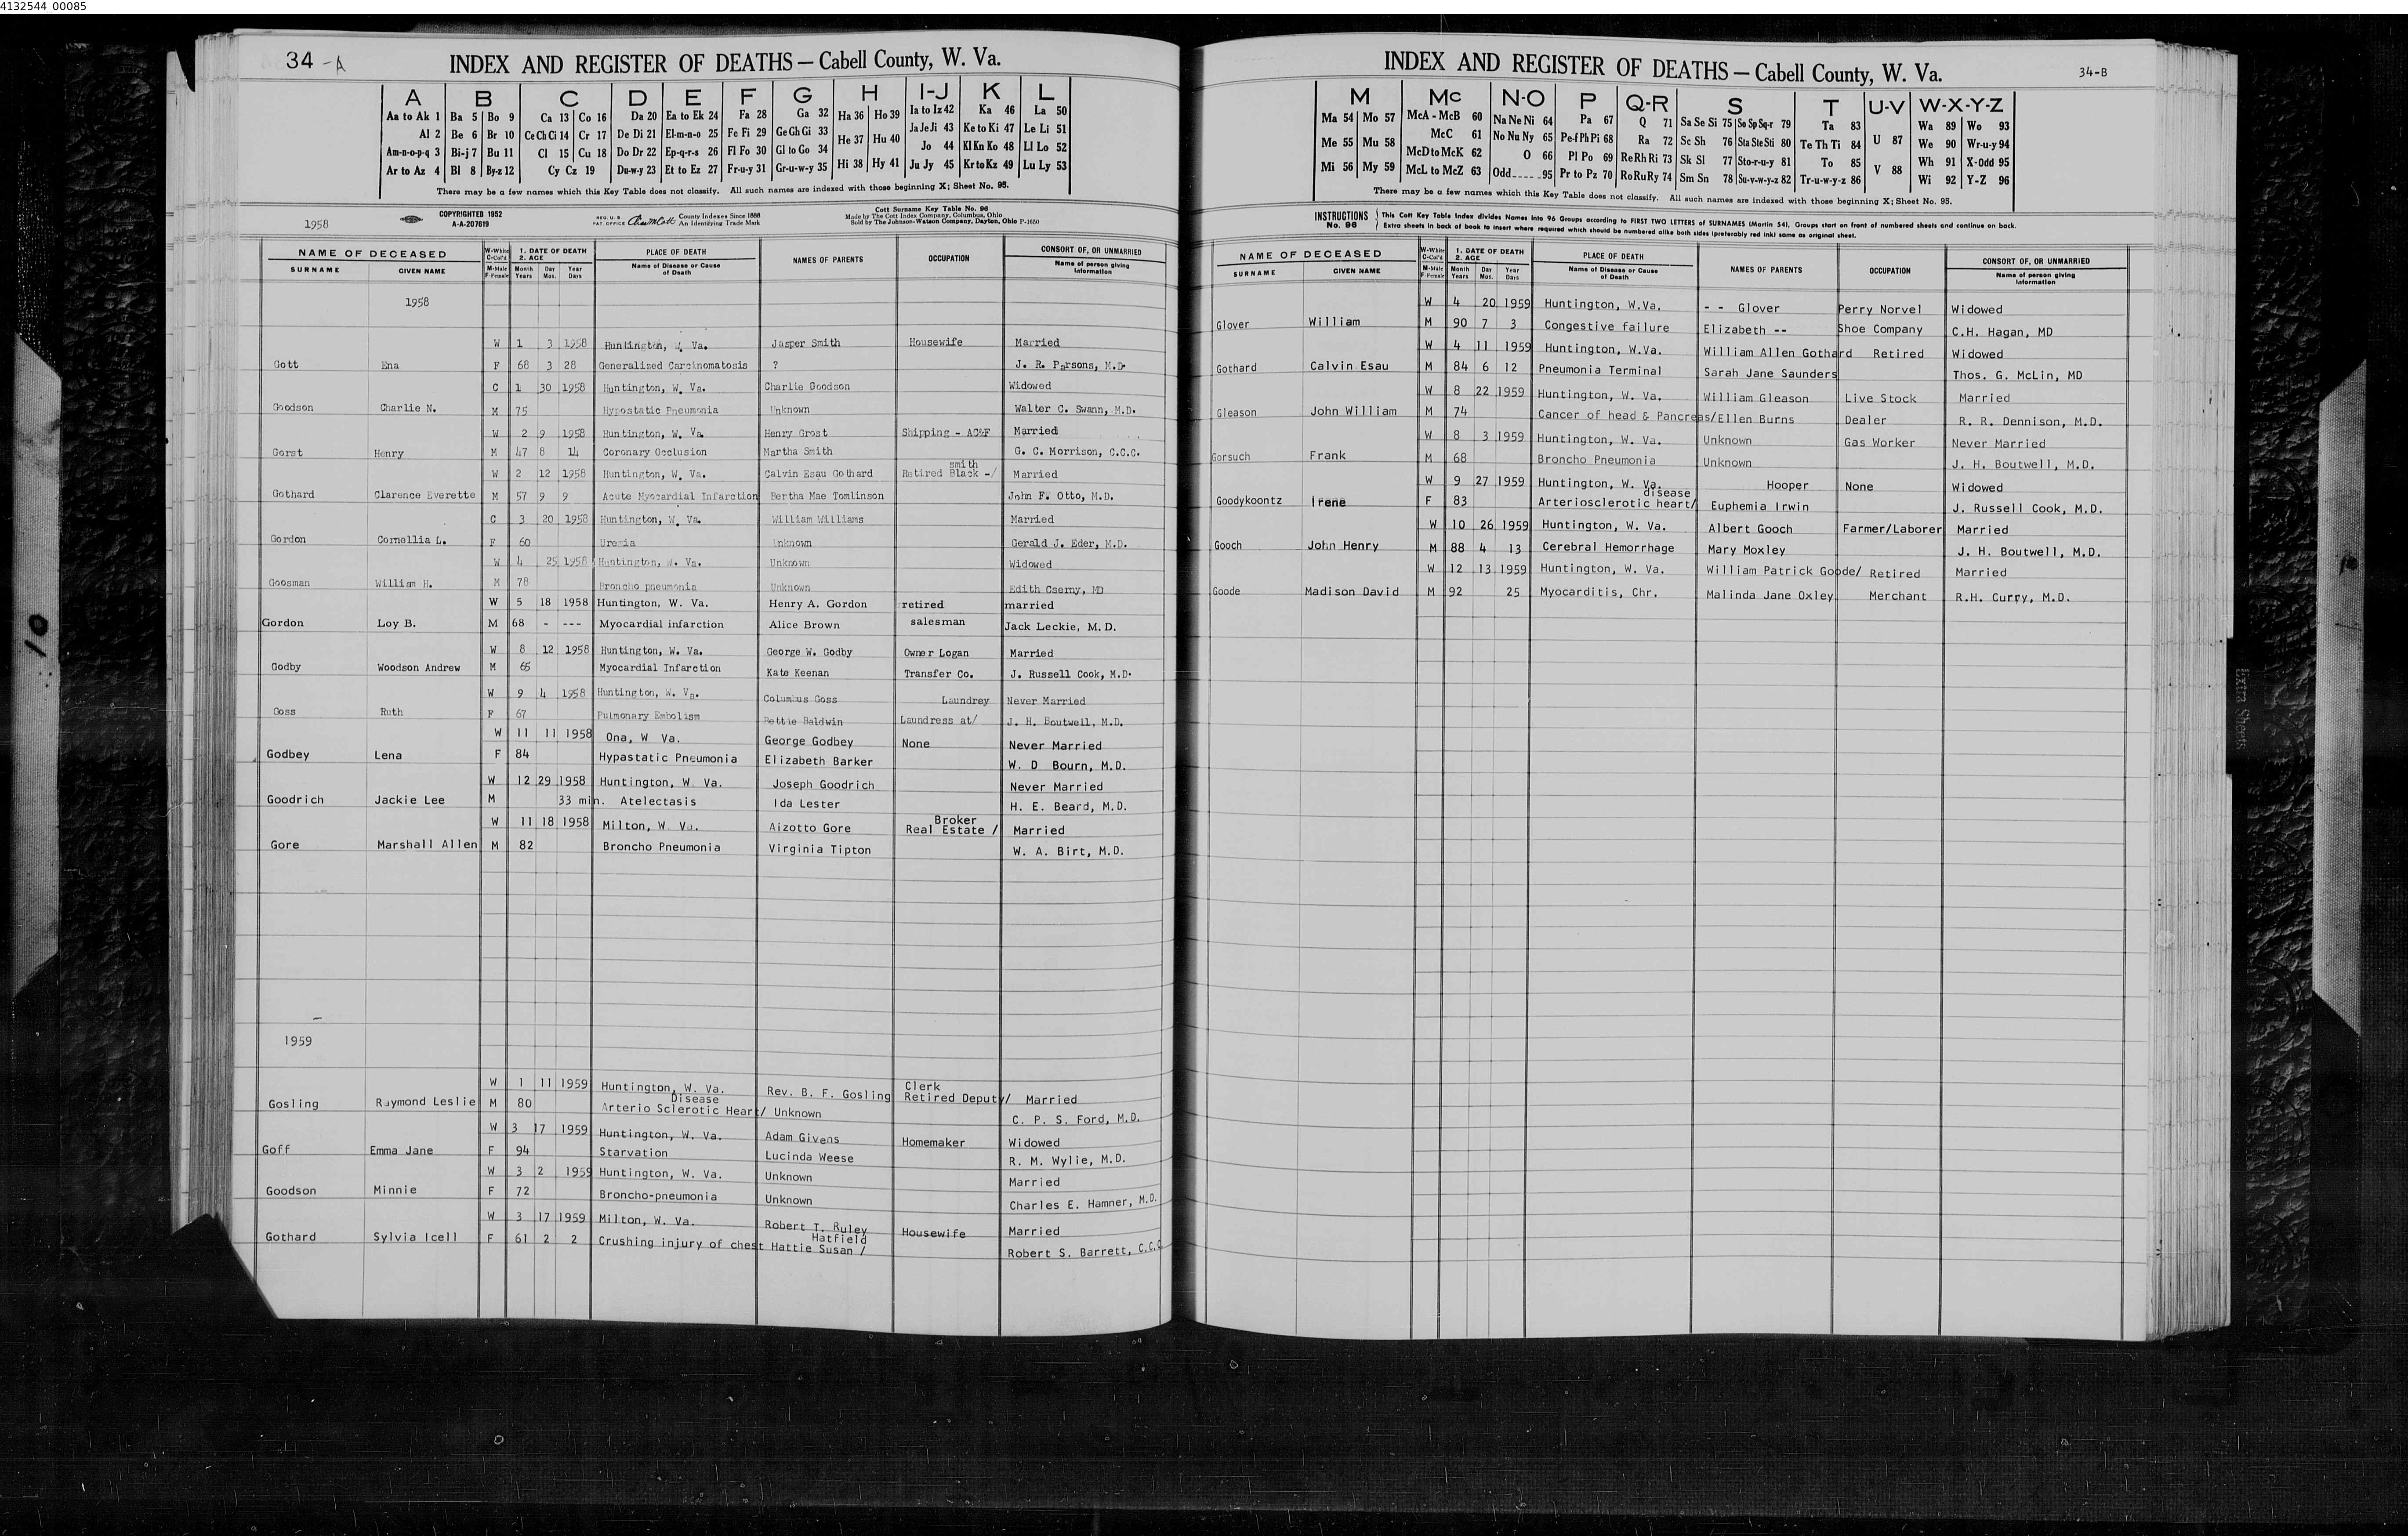 4132544_00085
34-A
INDEX AND REGISTER OF DEATHS — Cabell County, W. Va.
A B C D E F G H I-J K L
Aa to Ak 1 Ba 5 Bo 9 Ca 13 Co 16 Da 20 Ea to Ek 24 Fa 28 Ga 32 Ha 36 Ho 39 Ia to Iz 42 Ka 46 La 50
Al 2 Be 6 Br 10 Ce Ch Ci 14 Cr 17 De Di 21 El-m-n-o 25 Fe Fi 29 Ge Gh Gi 33 He 37 Hu 40 Ja Je Ji 43 Ke to Ki 47 Le Li 51
Am-n-o-p-q 3 Bi-j 7 Bu 11 Cl 15 Cu 18 Do Dr 22 Ep-q-r-s 26 Fl Fo 30 Gl to Go 34 Jo 44 Kl Kn Ko 48 Ll Lo 52
Ar to Az 4 Bl 8 By-z 12 Cy Cz 19 Du-w-y 23 Et to Ez 27 Fr-u-y 31 Gr-u-w-y 35 Hi 38 Hy 41 Ju Jy 45 Kr to Kz 49 Lu Ly 53
There may be a few names which this Key Table does not classify. All such names are indexed with those beginning X; Sheet No. 95.
1958
COPYRIGHTED 1952
A-A-207619
REG. U.S. PAT. OFFICE
County Indexes Since 1888
An Identifying Trade Mark
Cott Surname Key Table No. 96
Made by The Cott Index Company, Columbus, Ohio
Sold by The Johnson-Watson Company, Dayton, Ohio P-1650
NAME OF DECEASED W-White C-Col'd 1. DATE OF DEATH 2. AGE PLACE OF DEATH NAMES OF PARENTS OCCUPATION CONSORT OF, OR UNMARRIED
SURNAME GIVEN NAME M-Male F-Female Month Years Day Mos. Year Days Name of Disease or Cause of Death Name of person giving information
1958
W 1 3 1958 Huntington, W. Va. Jasper Smith Housewife Married
Gott Ena F 68 3 28 Generalized Carcinomatosis ? J. R. Parsons, M.D.
C 1 30 1958 Huntington, W. Va. Charlie Goodson Widowed
Goodson Charlie N. M 75 Hypostatic Pneumonia Unknown Walter C. Swann, M.D.
W 2 9 1958 Huntington, W. Va. Henry Grost Shipping - AC&F Married
Gorst Henry M 47 8 14 Coronary Occlusion Martha Smith G. C. Morrison, C.C.C.
W 2 12 1958 Huntington, W. Va. Calvin Esau Gothard Retired Black -/ smith Married
Gothard Clarence Everette M 57 9 9 Acute Myocardial Infarction Bertha Mae Tomlinson John F. Otto, M.D.
C 3 20 1958 Huntington, W. Va. William Williams Married
Gordon Cornellia L. F 60 Uremia Unknown Gerald J. Eder, M.D.
W 4 25 1958 Huntington, W. Va. Unknown Widowed
Goosman William H. M 78 Broncho pneumonia Unknown Edith Cserny, MD
W 5 18 1958 Huntington, W. Va. Henry A. Gordon retired married
Gordon Loy B. M 68 - --- Myocardial infarction Alice Brown salesman Jack Leckie, M.D.
W 8 12 1958 Huntington, W. Va. George W. Godby Owner Logan Married
Godby Woodson Andrew M 65 Myocardial Infarction Kate Keenan Transfer Co. J. Russell Cook, M.D.
W 9 4 1958 Huntington, W. Va. Columbus Goss Laundrey Never Married
Goss Ruth F 67 Pulmonary Embolism Bettie Baldwin Laundress at/ J. H. Boutwell, M.D.
W 11 11 1958 Ona, W Va. George Godbey None Never Married
Godbey Lena F 84 Hypastatic Pneumonia Elizabeth Barker W. D Bourn, M.D.
W 12 29 1958 Huntington, W Va. Joseph Goodrich Never Married
Goodrich Jackie Lee M 33 min. Atelectasis Ida Lester H. E. Beard, M.D.
W 11 18 1958 Milton, W. Va. Aizotto Gore Real Estate / Broker Married
Gore Marshall Allen M 82 Broncho Pneumonia Virginia Tipton W. A. Birt, M.D.
1959
W 1 11 1959 Huntington, W. Va. Rev. B. F. Gosling Retired Deputy/ Clerk Married
Gosling Raymond Leslie M 80 Arterio Sclerotic Heart/ Disease Unknown C. P. S. Ford, M.D.
W 3 17 1959 Huntington, W. Va. Adam Givens Homemaker Widowed
Goff Emma Jane F 94 Starvation Lucinda Weese R. M. Wylie, M.D.
W 3 2 1959 Huntington, W. Va. Unknown Married
Goodson Minnie F 72 Broncho-pneumonia Unknown Charles E. Hamner, M.D.
W 3 17 1959 Milton, W. Va. Robert T. Ruley Housewife Married
Gothard Sylvia Icell F 61 2 2 Crushing injury of chest Hattie Susan / Hatfield Robert S. Barrett, C.C.C
INDEX AND REGISTER OF DEATHS — Cabell County, W. Va.
34-B
M Mc N-O P Q-R S T U-V W-X-Y-Z
Ma 54 Mo 57 McA - McB 60 Na Ne Ni 64 Pa 67 Q 71 Sa Se Si 75 So Sp Sq-r 79 Ta 83 U 87 Wa 89 Wo 93
Me 55 Mu 58 McC 61 No Nu Ny 65 Pe-f Ph Pi 68 Ra 72 Sc Sh 76 Sta Ste Sti 80 Te Th Ti 84 We 90 Wr-u-y 94
McD to McK 62 O 66 Pl Po 69 Re Rh Ri 73 Sk Sl 77 Sto-r-u-y 81 To 85 V 88 Wh 91 X-Odd 95
Mi 56 My 59 McL to McZ 63 Odd 95 Pr to Pz 70 Ro Ru Ry 74 Sm Sn 78 Su-v-w-y-z 82 Tr-u-w-y-z 86 Wi 92 Y-Z 96
There may be a few names which this Key Table does not classify. All such names are indexed with those beginning X; Sheet No. 95.
INSTRUCTIONS No. 96
This Cott Key Table Index divides Names into 96 Groups according to FIRST TWO LETTERS of SURNAMES (Martin 54), Groups start on front of numbered sheets and continue on back.
Extra sheets in back of book to insert where required which should be numbered alike both sides (preferably red ink) same as original sheet.
NAME OF DECEASED W-White C-Col'd 1. DATE OF DEATH 2. AGE PLACE OF DEATH NAMES OF PARENTS OCCUPATION CONSORT OF, OR UNMARRIED
SURNAME GIVEN NAME M-Male F-Female Month Years Day Mos. Year Days Name of Disease or Cause of Death Name of person giving information
W 4 20 1959 Huntington, W.Va. - - Glover Perry Norvel Widowed
Glover William M 90 7 3 Congestive failure Elizabeth -- Shoe Company C.H. Hagan, MD
W 4 11 1959 Huntington, W.Va. William Allen Gothard Retired Widowed
Gothard Calvin Esau M 84 6 12 Pneumonia Terminal Sarah Jane Saunders Thos. G. McLin, MD
W 8 22 1959 Huntington, W. Va. William Gleason Live Stock Married
Gleason John William M 74 Cancer of head & Pancreas/Ellen Burns Dealer R. R. Dennison, M.D.
W 8 3 1959 Huntington, W. Va. Unknown Gas Worker Never Married
Gorsuch Frank M 68 Broncho Pneumonia Unknown J. H. Boutwell, M.D.
W 9 27 1959 Huntington, W. Va. Hooper None Widowed
Goodykoontz Irene F 83 Arteriosclerotic heart/ disease Euphemia Irwin J. Russell Cook, M.D.
W 10 26 1959 Huntington, W. Va. Albert Gooch Farmer/Laborer Married
Gooch John Henry M 88 4 13 Cerebral Hemorrhage Mary Moxley J. H. Boutwell, M.D.
W 12 13 1959 Huntington, W. Va. William Patrick Goode/ Retired Married
Goode Madison David M 92 25 Myocarditis, Chr. Malinda Jane Oxley Merchant R.H. Curry, M.D.
Extra Sheets
10